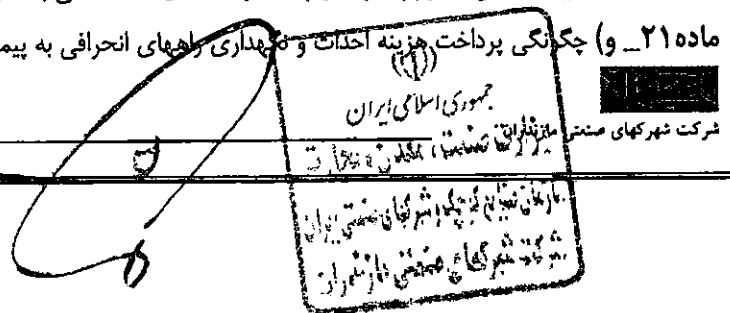 ماده۲۱_ و) چگونگی پرداخت هزینه احداث و نگهداری راههای انحرافی به پیم
جمهوری اسلامی ایران
شرکت شهرکهای صنعتی مازندران
وزارت صنعت، معدن و تجارت
سازمان صنایع کوچک و شهرکهای صنعتی ایران
شرکت شهرکهای صنعتی مازندران